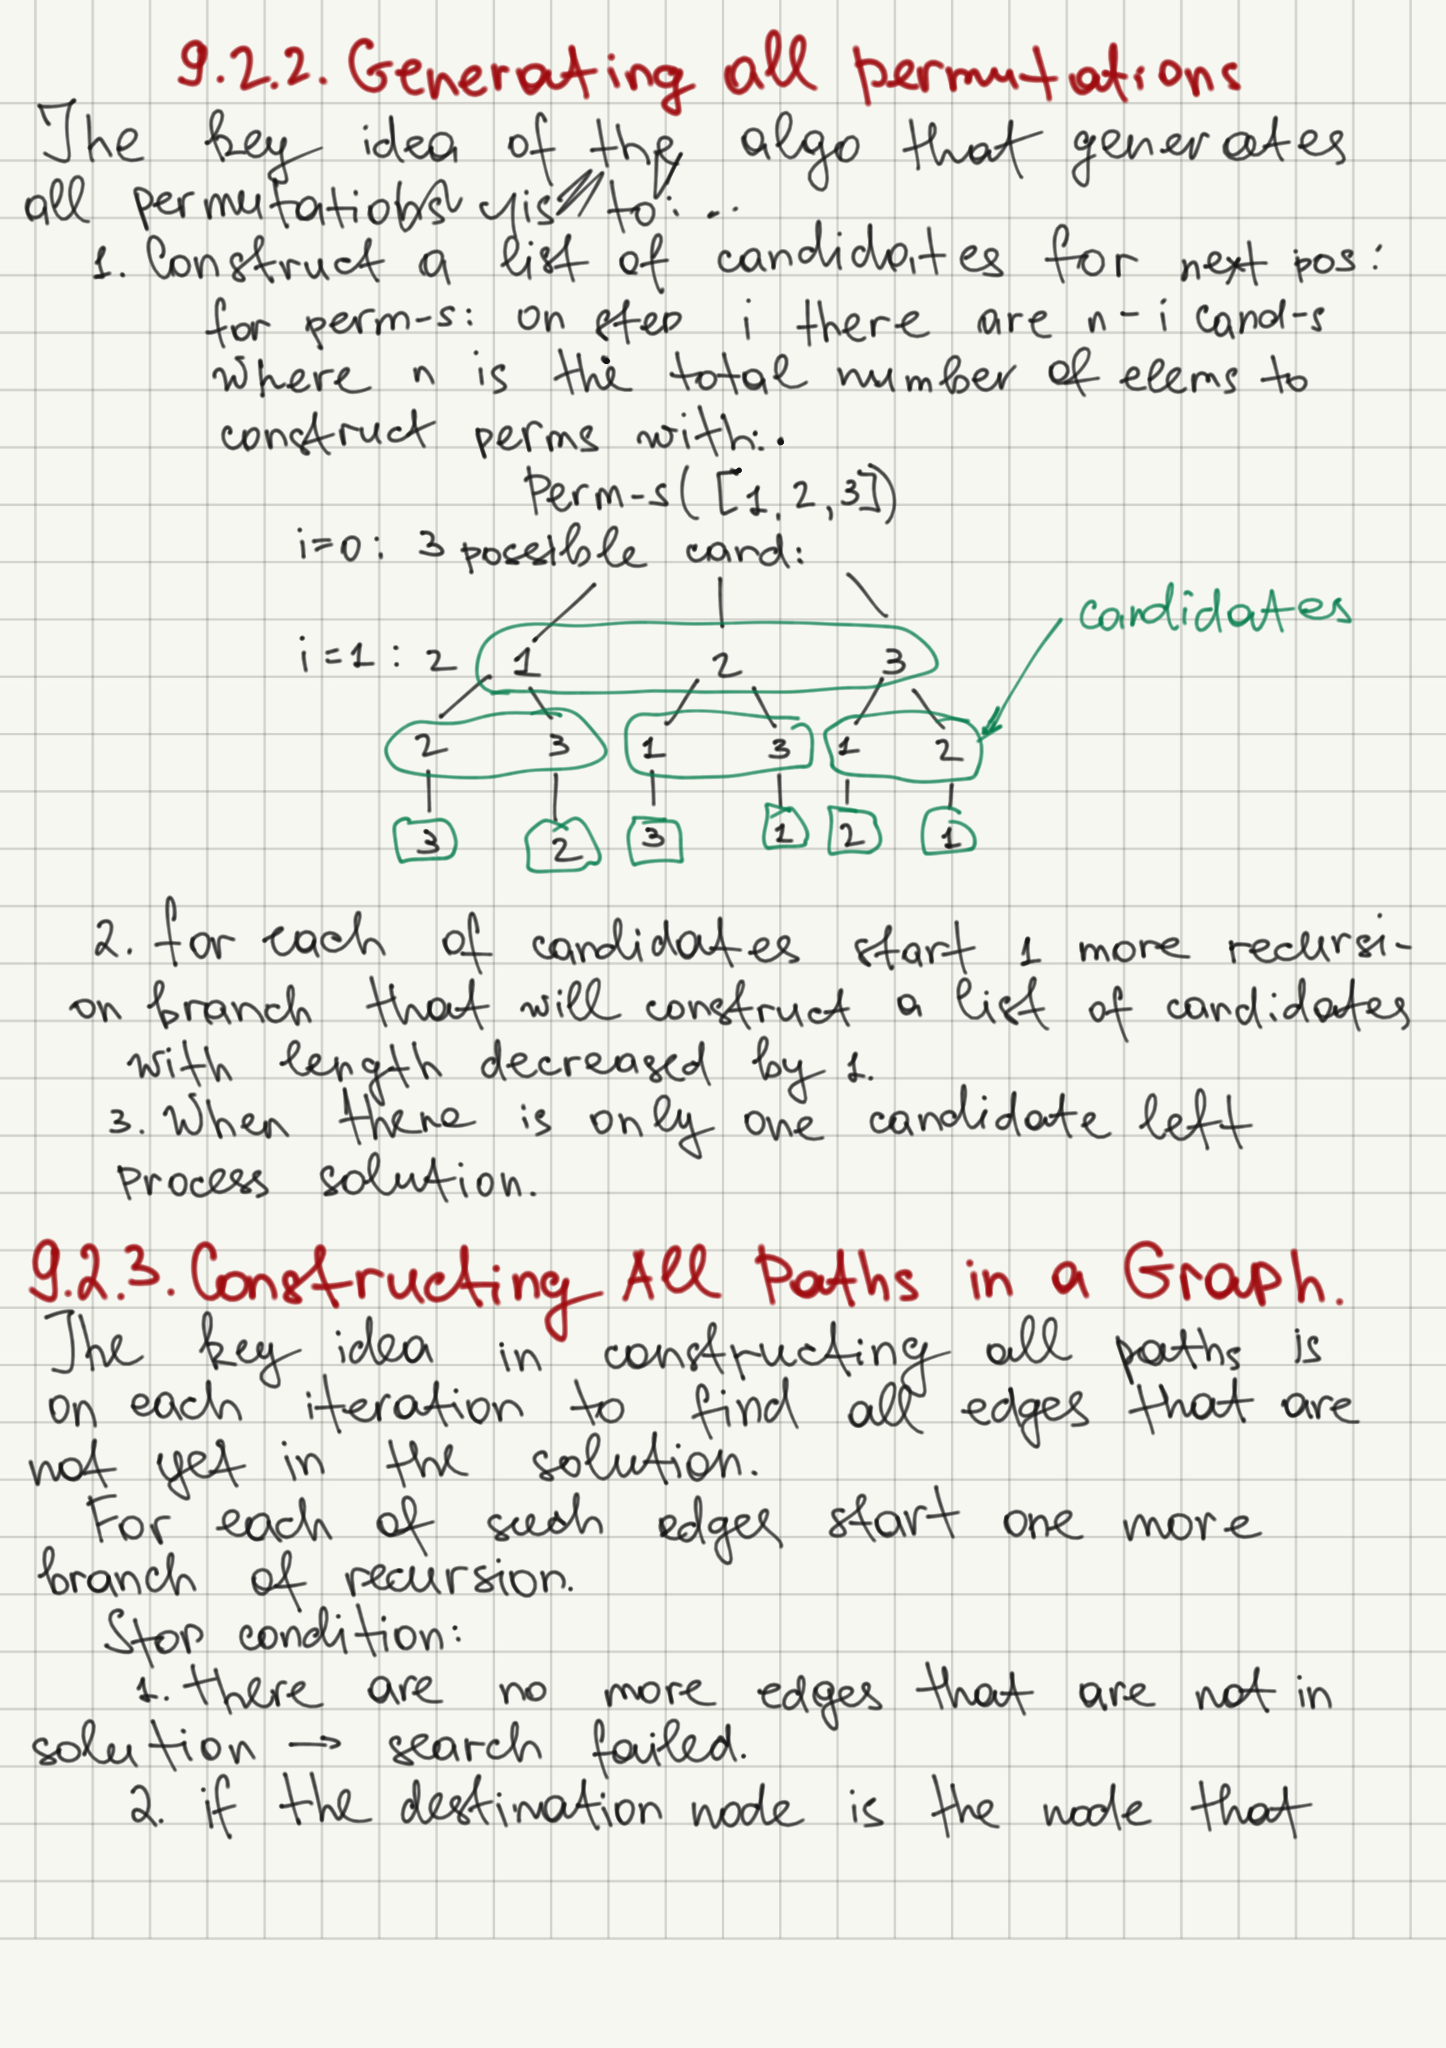 9.2.2. Generating all permutations
The key idea of the algo that generates
all permutations is to: ...
1. Construct a list of candidates for next pos:
for perm-s: on step i there are n-i cand-s
where n is the total number of elems to
construct perms with:.
Perm-s([1,2,3])
i=0: 3 possible cand:
candidates
i=1: 2 1 2 3
2 3 1 3 1 2
3 2 3 1 2 1
2. for each of candidates start 1 more recursi-
on branch that will construct a list of candidates
with length decreased by 1.
3. When there is only one candidate left
process solution.
9.2.3. Constructing All Paths in a Graph.
The key idea in constructing all paths is
on each iteration to find all edges that are
not yet in the solution.
For each of such edges start one more
branch of recursion.
Stop condition:
1. there are no more edges that are not in
solution → search failed.
2. if the destination node is the node that